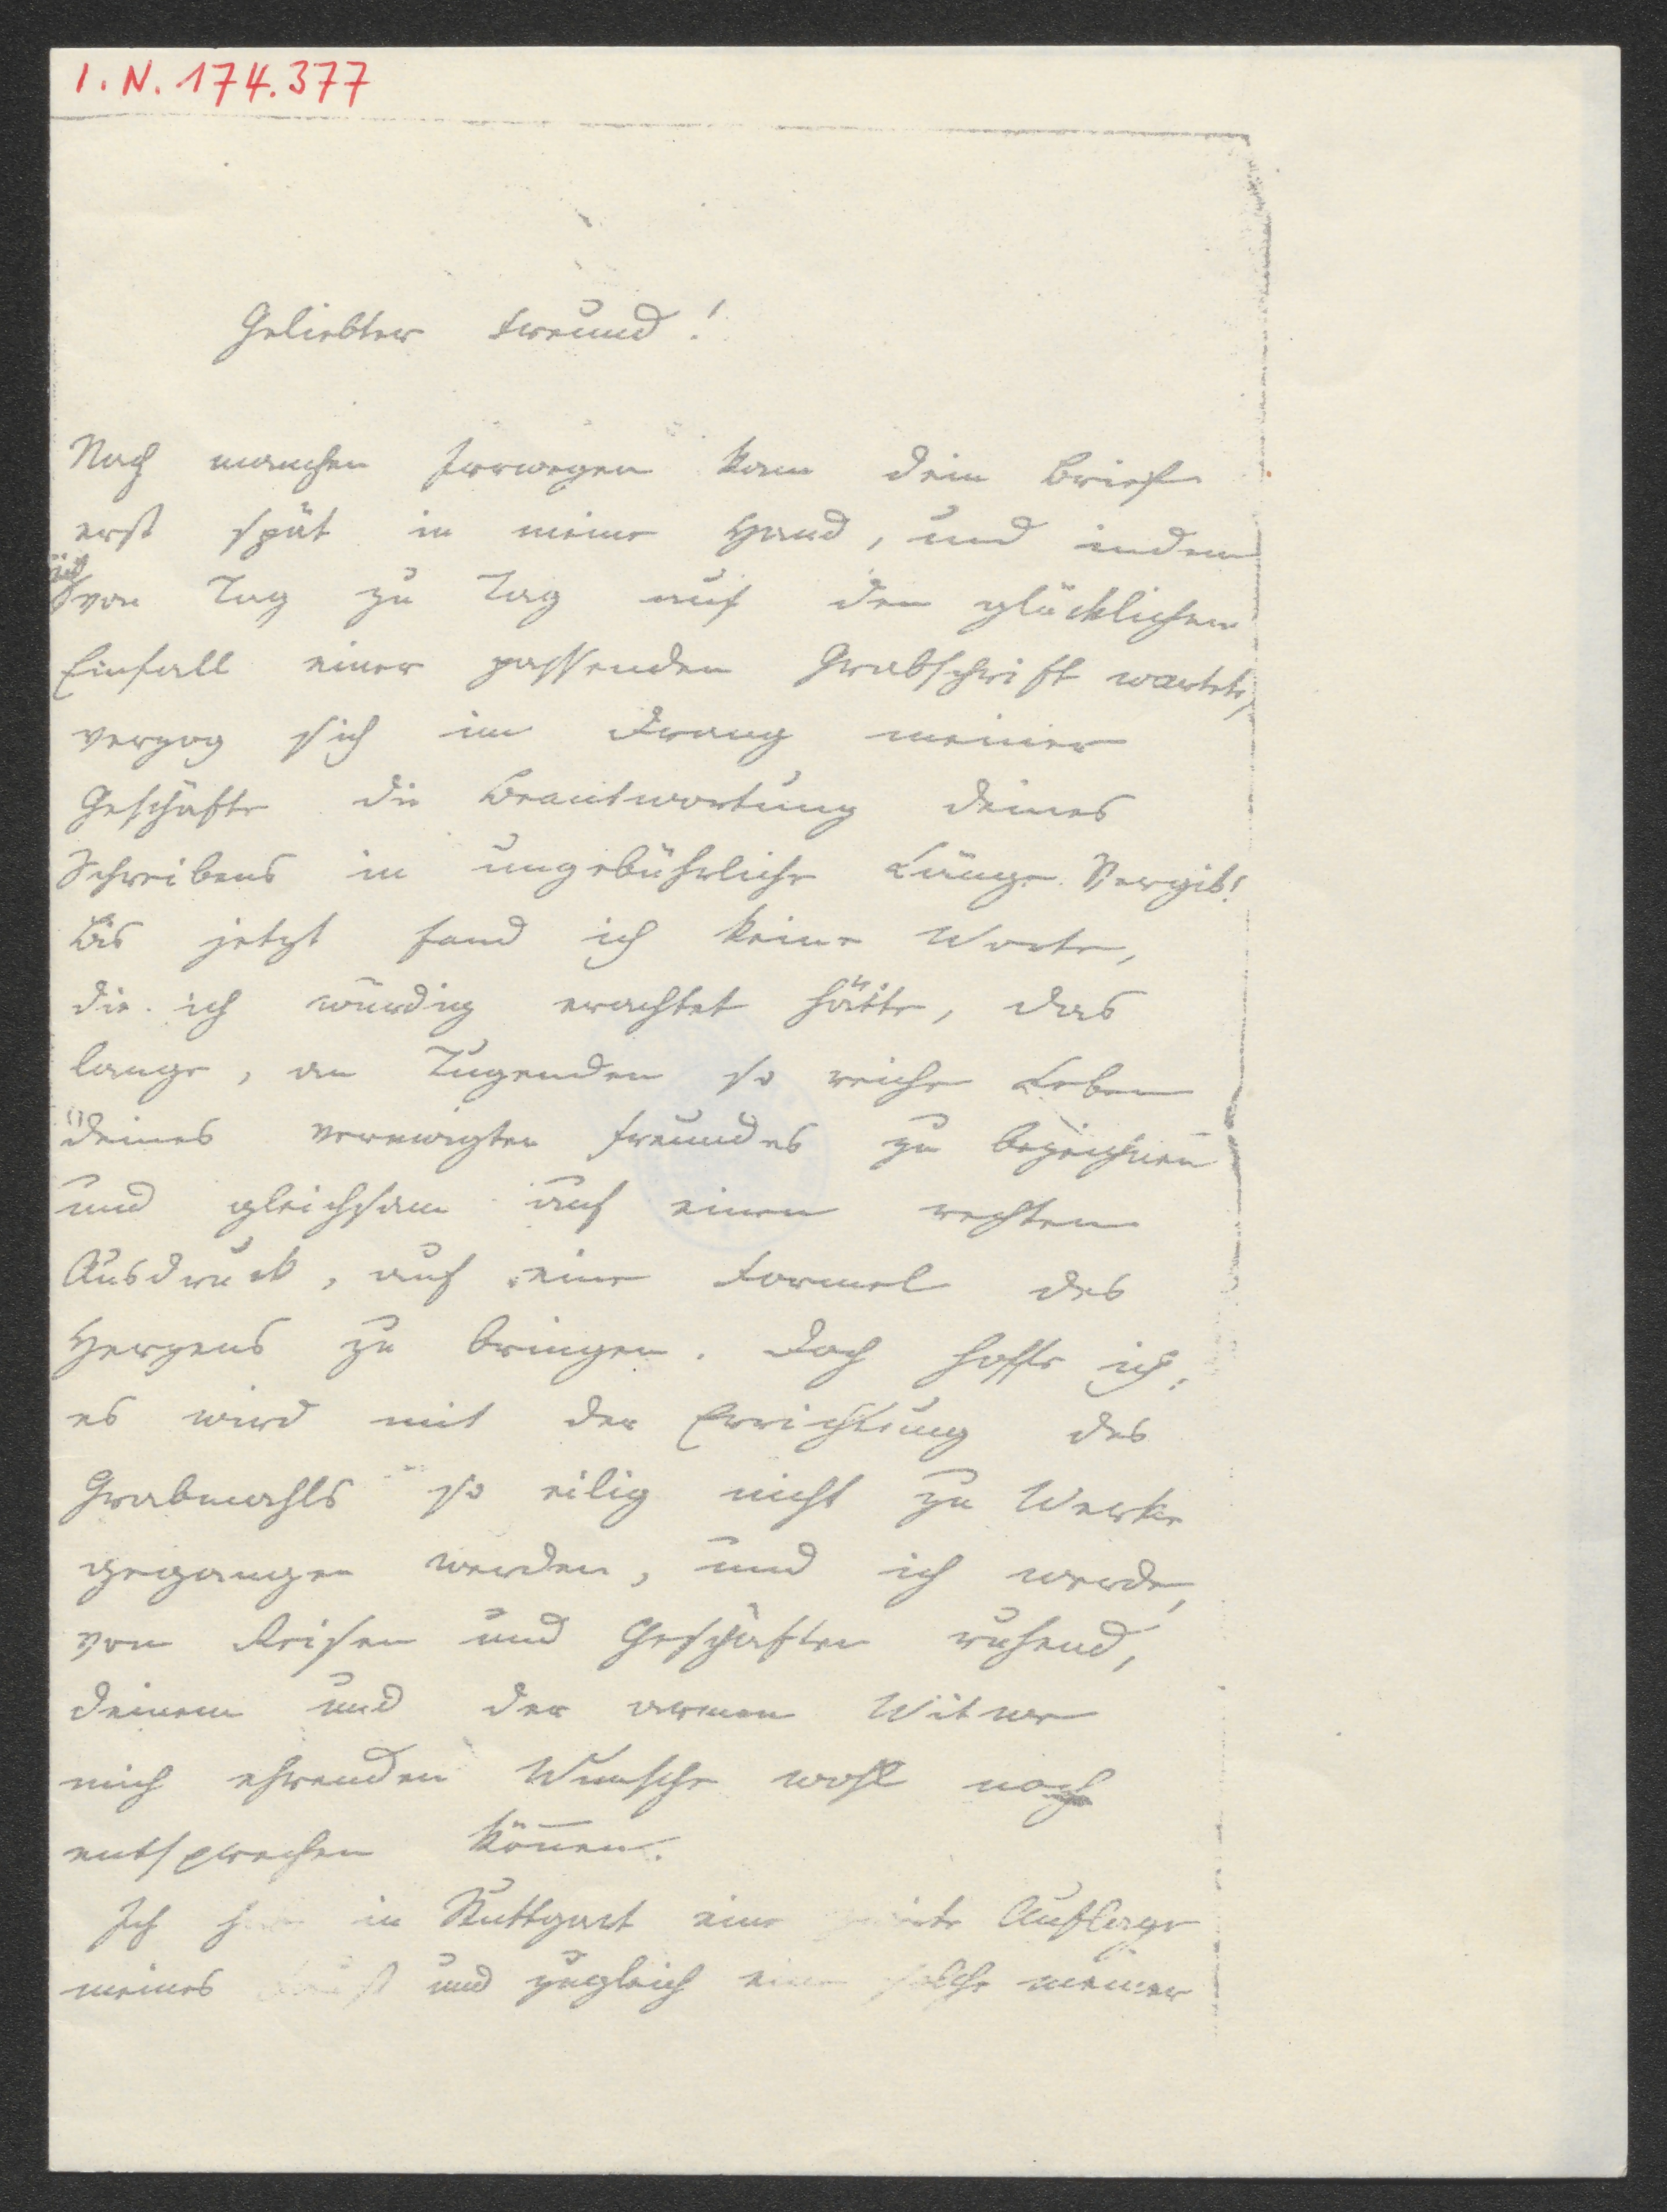 I. N. 174.377
Geliebter Freund!
Nach manchen Irrwegen kam dein Brief
erst spät in meine Hand, und indem
ich von Tag zu Tag auf den glücklichen
Einfall einer passenden Grabschrift wartete,
verzog sich im Drang meiner
Geschäfte die Beantwortung deines
Schreibens in ungebührliche Länge. Vergib!
Bis jetzt fand ich keine Worte,
die ich würdig erachtet hätte, das
lange, an Tugenden so reiche Leben
deines verewigten Freundes zu bezeichnen
und gleichsam auf einen rechten
Ausdruck, auf eine Formel des
Herzens zu bringen. Doch hoffe ich,
es wird mit der Errichtung des
Grabmahls so eilig nicht zu Werke
gegangen werden, und ich werde,
von Reisen und Geschäften ruhend,
deinem und der armen Witwe
mich ehrenden Wunsche wohl noch
entsprechen können.
Ich in Stuttgart eine Auflage
meines und zugleich eine solche meiner